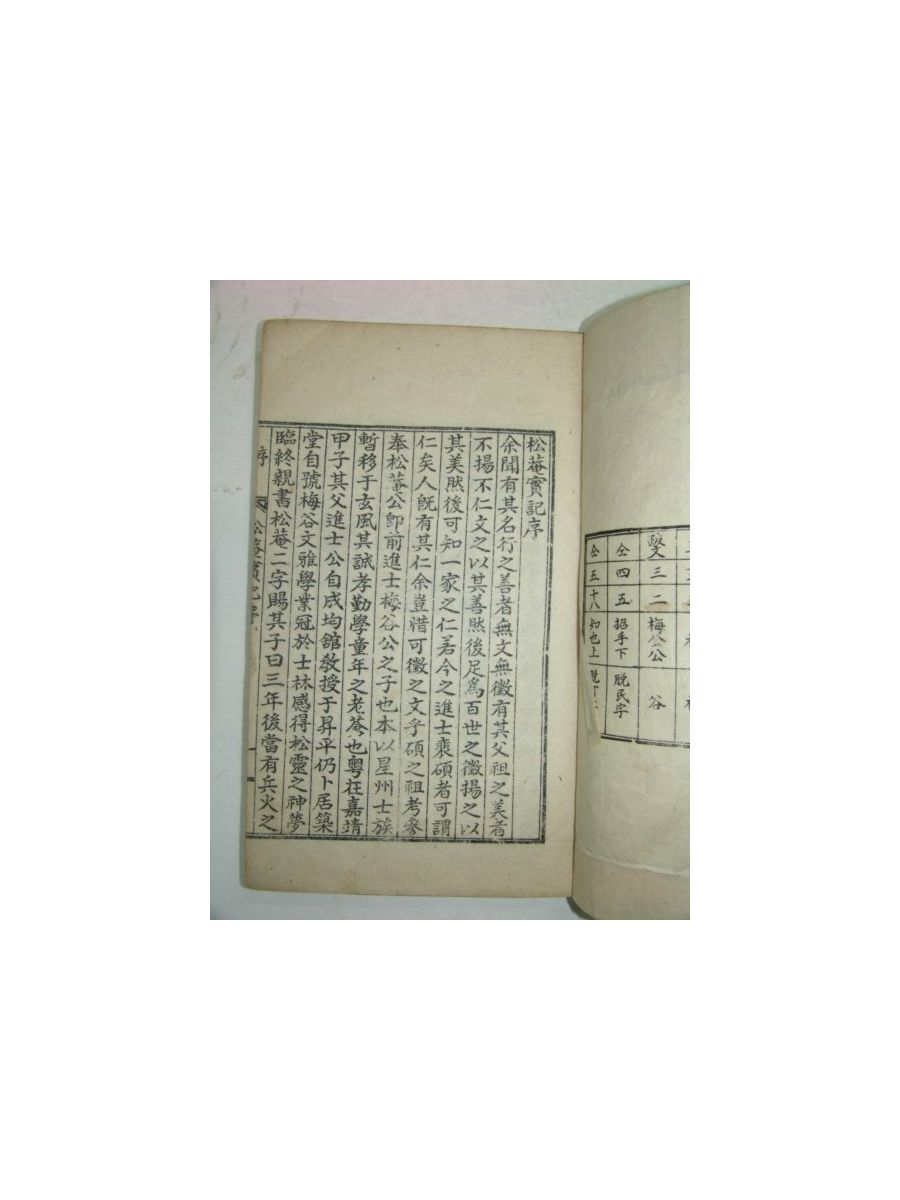 三
梅公公
谷
仝
四
五
招手下
脱民字
仝
五
十八
知也上
松菴實記序
余聞有其名行之善者無文無徵有其父祖之美者
不揚不仁文之以其善然後足爲百世之徵揚之以
其美然後可知一家之仁若今之進士裵碩者可謂
仁矣人旣有其仁余豈惜可徵之文乎碩之祖考參
奉松菴公卽前進士梅谷公之子也本以星州士族
暫移于玄風其誠孝勤學童年之老蒼也粤在嘉靖
甲子其父進士公自成均舘敎授于昇平仍卜居築
堂自號梅谷文雅學業冠於士林感得松靈之神夢
臨終親書松菴二字賜其子曰三年後當有兵火之
松菴實記序